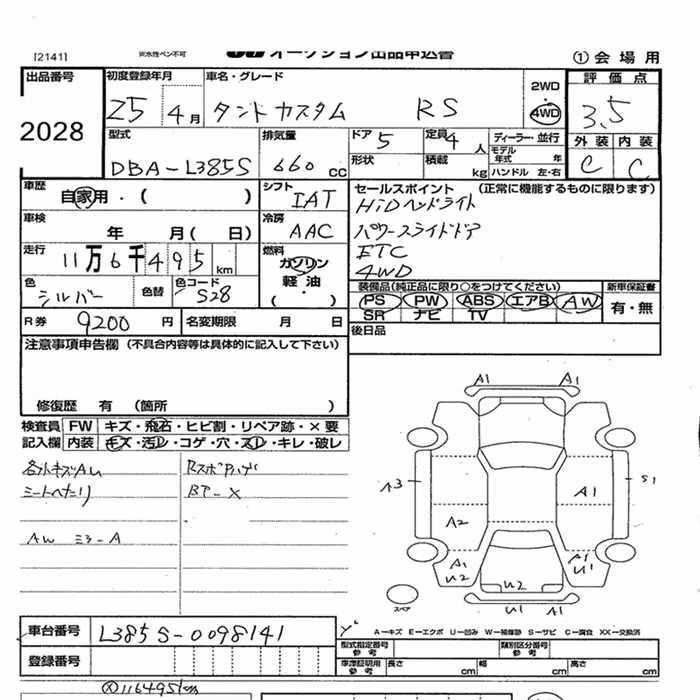 [2141] ※水性ペン不可 オークション出品申込書 ①会場用
出品番号 初度登録年月 車名・グレード 2WD・4WD 評価点
2028 25 4月 タントカスタム RS 3.5
型式 排気量 ドア 5 定員 4人 ディーラー・並行 外装 内装
DBA-L385S 660cc 形状 積載 kg モデル年式 年 ハンドル 左・右 C C
車歴 自家用・( ) シフト IAT セールスポイント (正常に機能するものに限ります)
車検 年 月( 日) 冷房 AAC HiDヘッドライト
パワースライドドア
走行 11万6千495km 燃料 ガソリン 軽油 ( ・ ) ETC
4WD
色 シルバー 色替 色コード S28 装備品(純正品に限り○をつけてください) 新車保証書
PS PW ABS エアB AW 有・無
R券 9200円 名変期限 月 日 SR ナビ TV
後日品
注意事項申告欄 (不具合内容等は具体的に記入して下さい)
修復歴 有 (箇所 )
検査員 FW キズ・飛石・ヒビ割・リペア跡・×要
記入欄 内装 キズ・汚レ・コゲ・穴・スレ・キレ・破レ
シートヘたり BP-X
AW ミラ-A
A1 A1
A3 A1 S1
A2
A1 U2 A1 U1
U2
スペア U1 A1
A-キズ E-エクボ U-凹み W-補修跡 S-サビ C-腐食 XX-交換済
車台番号 L385S-0098141 型式指定番号 参考 類別区分番号 参考
登録番号 車庫証明用 参考 長さ cm 幅 cm 高さ cm
116495km